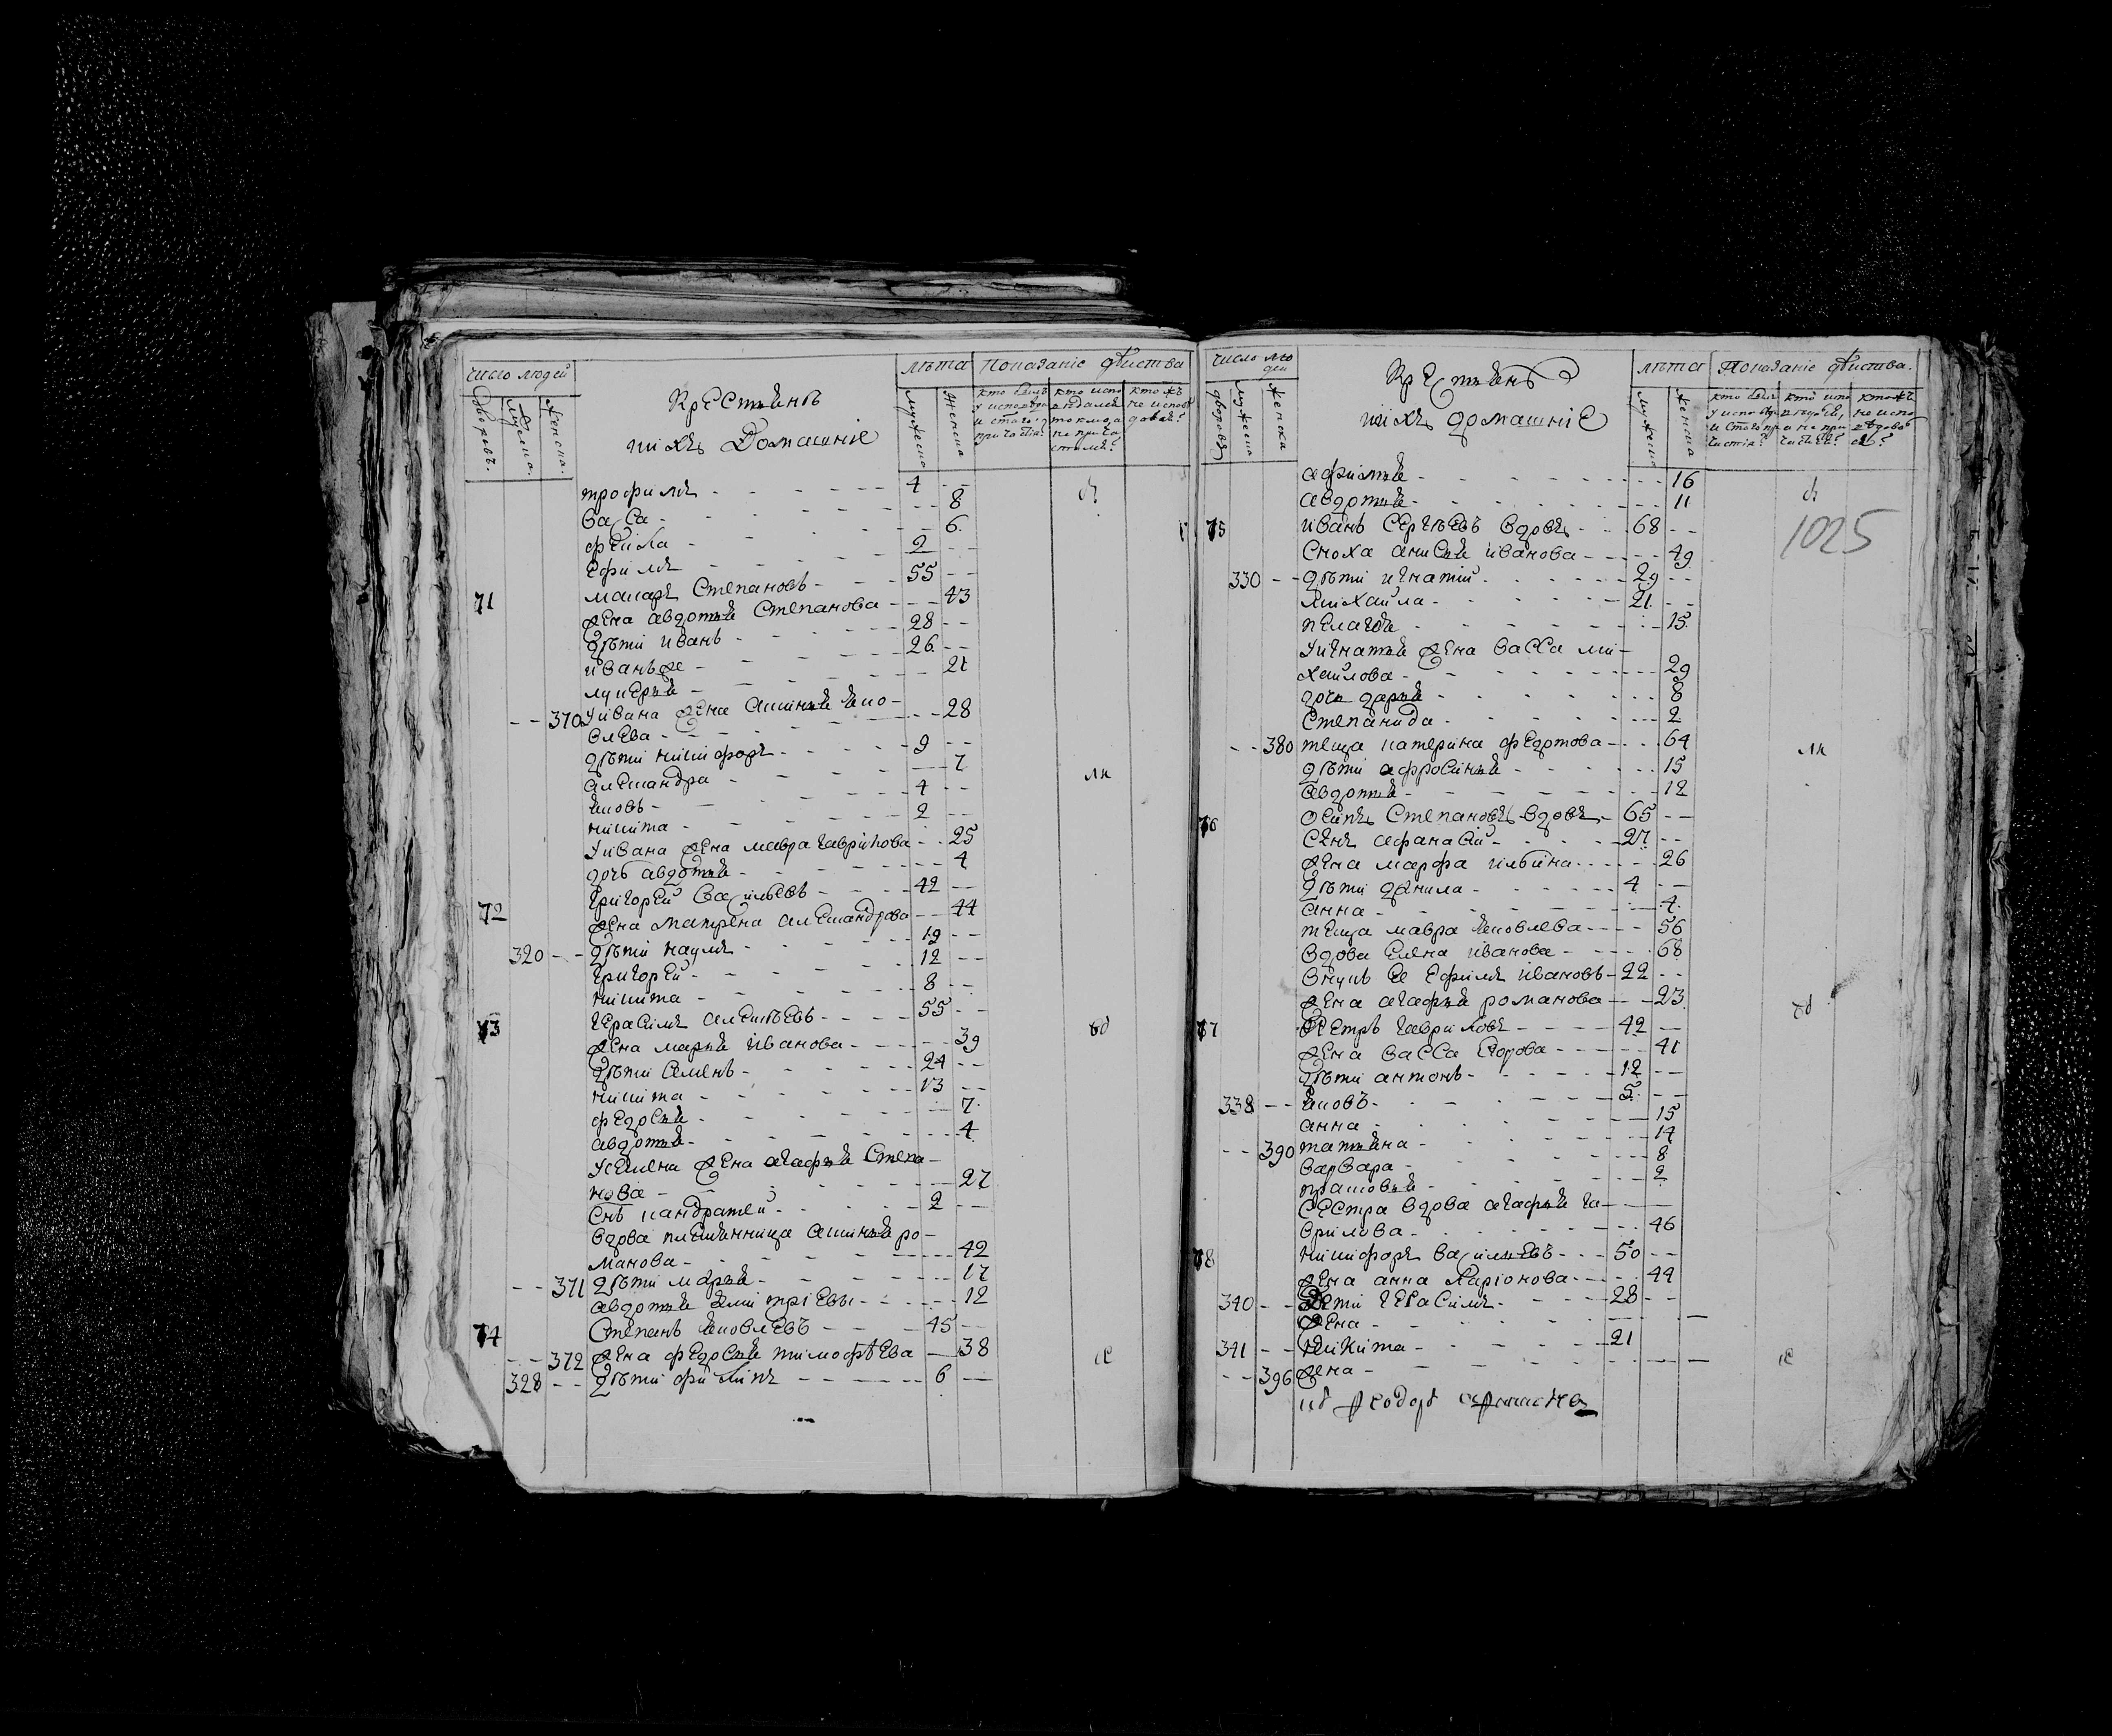 число людей
лѣта
Показанiе дѣиства
дворовъ.
мужеска.
женска.
Крестьянъ
ӥ ихъ Домашнiе
мужеска
женска
трофимъ - 4
васса - 8
фекла - 6.
ефимъ - 2
71 макаръ Степановъ - 55
жена авдотья Степанова - 43
дѣти иванъ - 28
иванъ же - 26
лукерья - 21
370 у ивана жена аксинья яко-
влева - 28
дѣти никифоръ - 9
александра - 7
яковъ - 4
никита - 2
у ивана жена мавра гаврилова - 25
дочь авдотья - 4
72 григорей васильевъ - 42
жена матрена александрова - 44
320 дѣти наумъ - 19
григорей - 12
никита - 8
73 герасимъ алексѣевъ - 55
жена марья иванова - 39
дѣти семенъ - 24
никита - 13
федосья - 7
авдотья - 4
у семена жена агафья степа-
нова - 27
снъ кандратей - 2
вдова племянница аксинья ро-
манова - 42
371 дѣти марья - 17
авдотья дмитрiевы - 12
74 Степанъ яковлевъ - 45
372 жена федосья тимофѣева - 38
328 дѣти филипъ - 6
число лю
деи
лѣта
Показанiе дѣиства.
дворовъ
мужеска
женска
Крестьянъ
ӥ ихъ домашнiе
мужеска
женска
афимья - 16
авдотья - 11
1025
75 иванъ Сергѣевъ вдовъ - 68
сноха анисья иванова - 49
330 дѣти игнатiй - 29
михаила - 21
пелагея - 15
у игнатья жена васса ми-
хаилова - 29
дочь дарья - 8
степанида - 2
380 теща катерина федотова - 64
дѣти афросинья - 15
авдотья - 12
76 осипъ Степановъ вдовъ - 65
сынъ афанасiй - 27
жена марфа ильина - 26
дѣти данила - 4
анна - 4
теща мавра яковлева - 56
вдова елена иванова - 68
внукъ ее ефимъ ивановъ - 22
жена агафья романова - 23
77 Петръ гавриловъ - 42
жена васса егорова - 41
дѣти антонъ - 12
338 яковъ - 5
анна - 15
390 татьяна - 14
варвара - 8
прасковья - 2
сестра вдова агафья га-
врилова - 46
78 никифоръ васильевъ - 50
жена анна ларiонова - 44
340 Дети герасимъ - 28
жена -
341 никита - 21
396 жена -